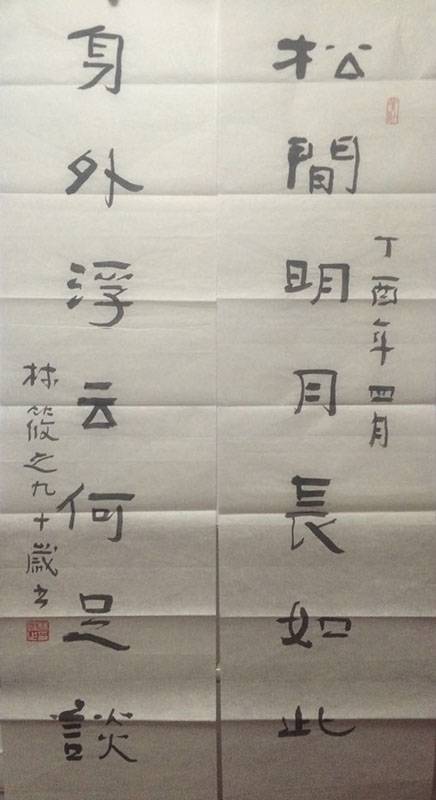 松間明月長如此
丁酉年四月
身外浮云何足談
林筱之九十歲书